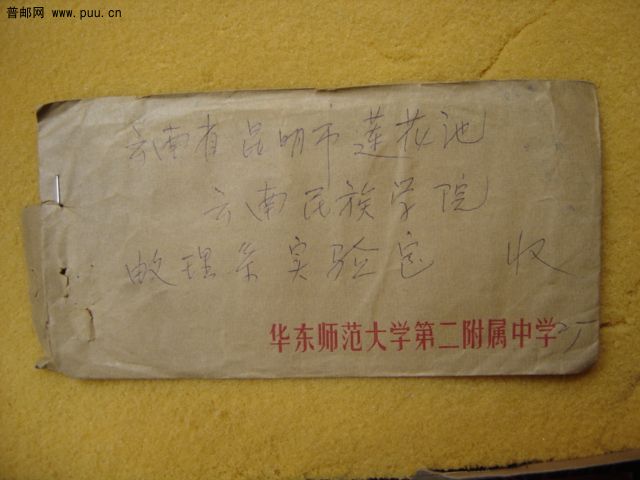 普邮网 www.puu.cn
云南省昆明市莲花池
云南民族学院
数理系实验室 收
华东师范大学第二附属中学